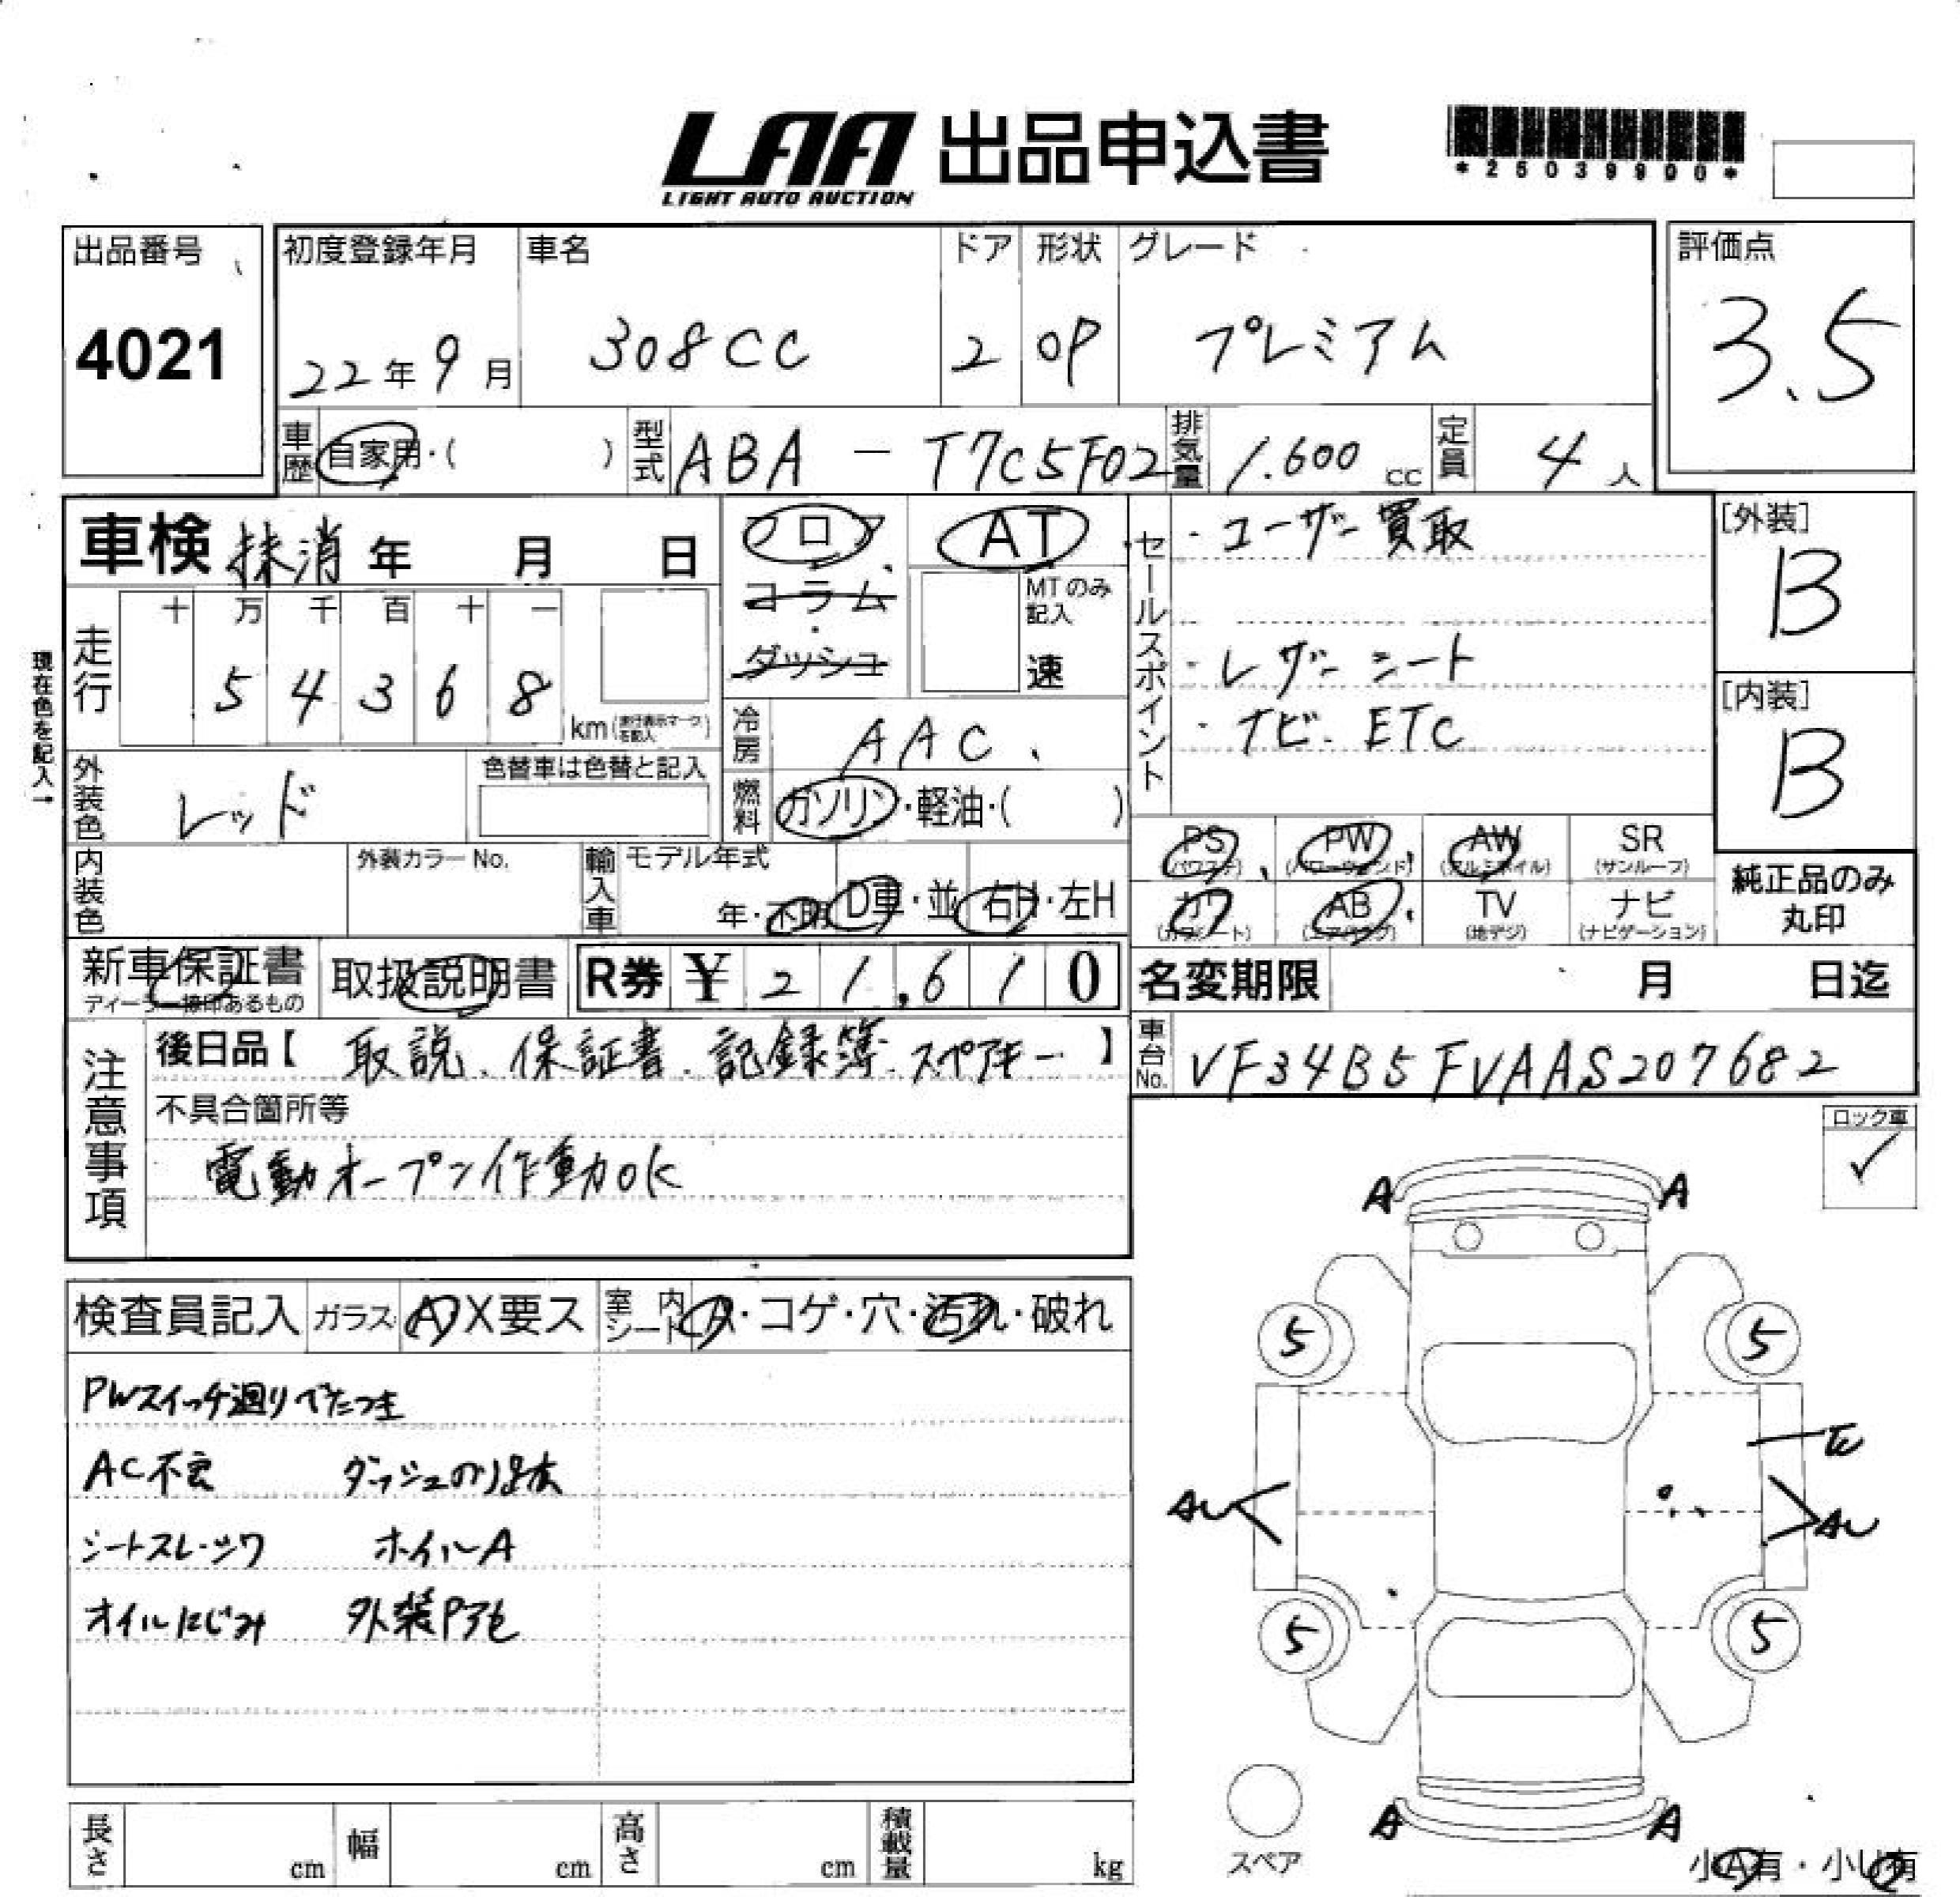 LAA 出品申込書
LIGHT AUTO AUCTION
出品番号
4021
初度登録年月
22年9月
車名
308CC
ドア
2
形状
OP
グレード
プレミアム
評価点
3.5
車歴
自家用・( )
型式
ABA - T7C5F02
排気量
1.600 cc
定員
4人
車検 抹消 年 月 日
フロア
コラム
・
ダッシュ
AT
MTのみ記入
速
セールスポイント
・ユーザー買取
・レザーシート
・ナビ. ETC
[外装]
B
[内装]
B
現在色を記入→
走行
十 万 千 百 十 一
5 4 3 6 8
km(走行表示マークを記入)
冷房
AAC.
燃料
ガソリン・軽油・( )
外装色
レッド
色替車は色替と記入
内装色
外装カラーNo.
輸入車
モデル年式
年・不明
D車・並
右H・左H
PS
(パワステ)
PW
(パワーウィンド)
AW
(アルミホイル)
SR
(サンルーフ)
カワ
(カワシート)
AB
(エアバッグ)
TV
(地デジ)
ナビ
(ナビゲーション)
純正品のみ
丸印
新車保証書
ディーラー捺印あるもの
取扱説明書
R券 ¥ 21,610
名変期限 月 日迄
注意事項
後日品【取説、保証書、記録簿、スペアキー】
不具合箇所等
電動オープン作動OK
車台No.
VF34B5FVAAS207682
ロック車
✓
検査員記入
ガラス
A X要ス
室内
シート
A・コゲ・穴・汚れ・破れ
PWスイッチ廻りべたつき
AC不良
シートスレ・シワ ホイルA
オイルにじみ
A A
5 5
AU AU
5 5
A A
スペア
小A有・小U有
長さ cm
幅 cm
高さ cm
積載量 kg